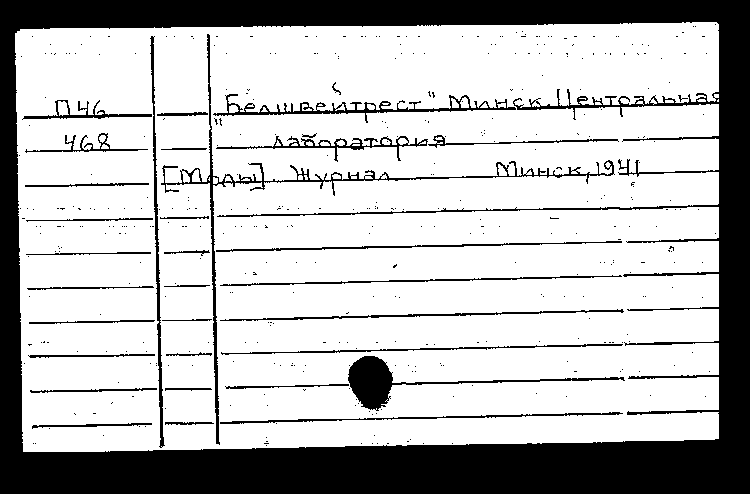 П46 „Белшвейтрест" Минск. Центральная
468 лаборатория
[Моды]. Журнал Минск, 1941